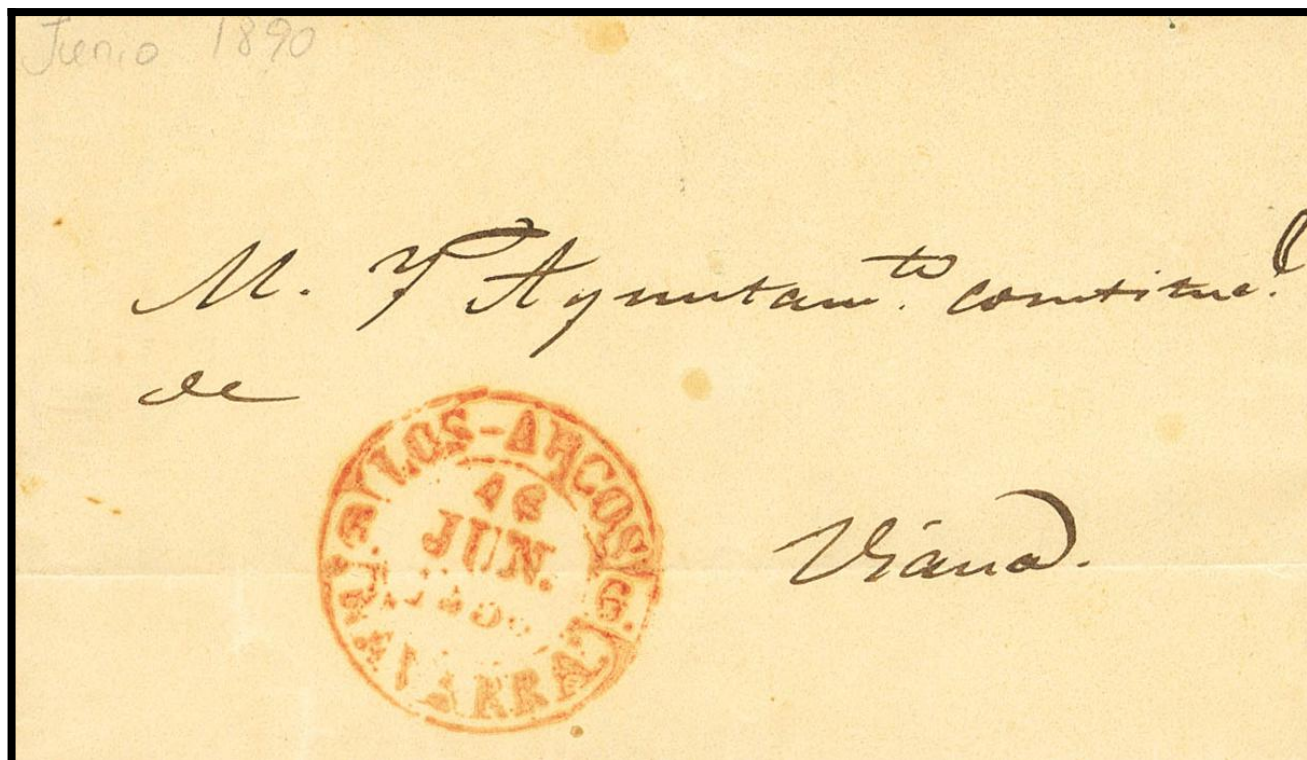 Junio 1890
M. Y Ayuntam.to constituc.l
de
LOS-ARCOS
16
JUN.
6.
NAVARRA.
Viana.